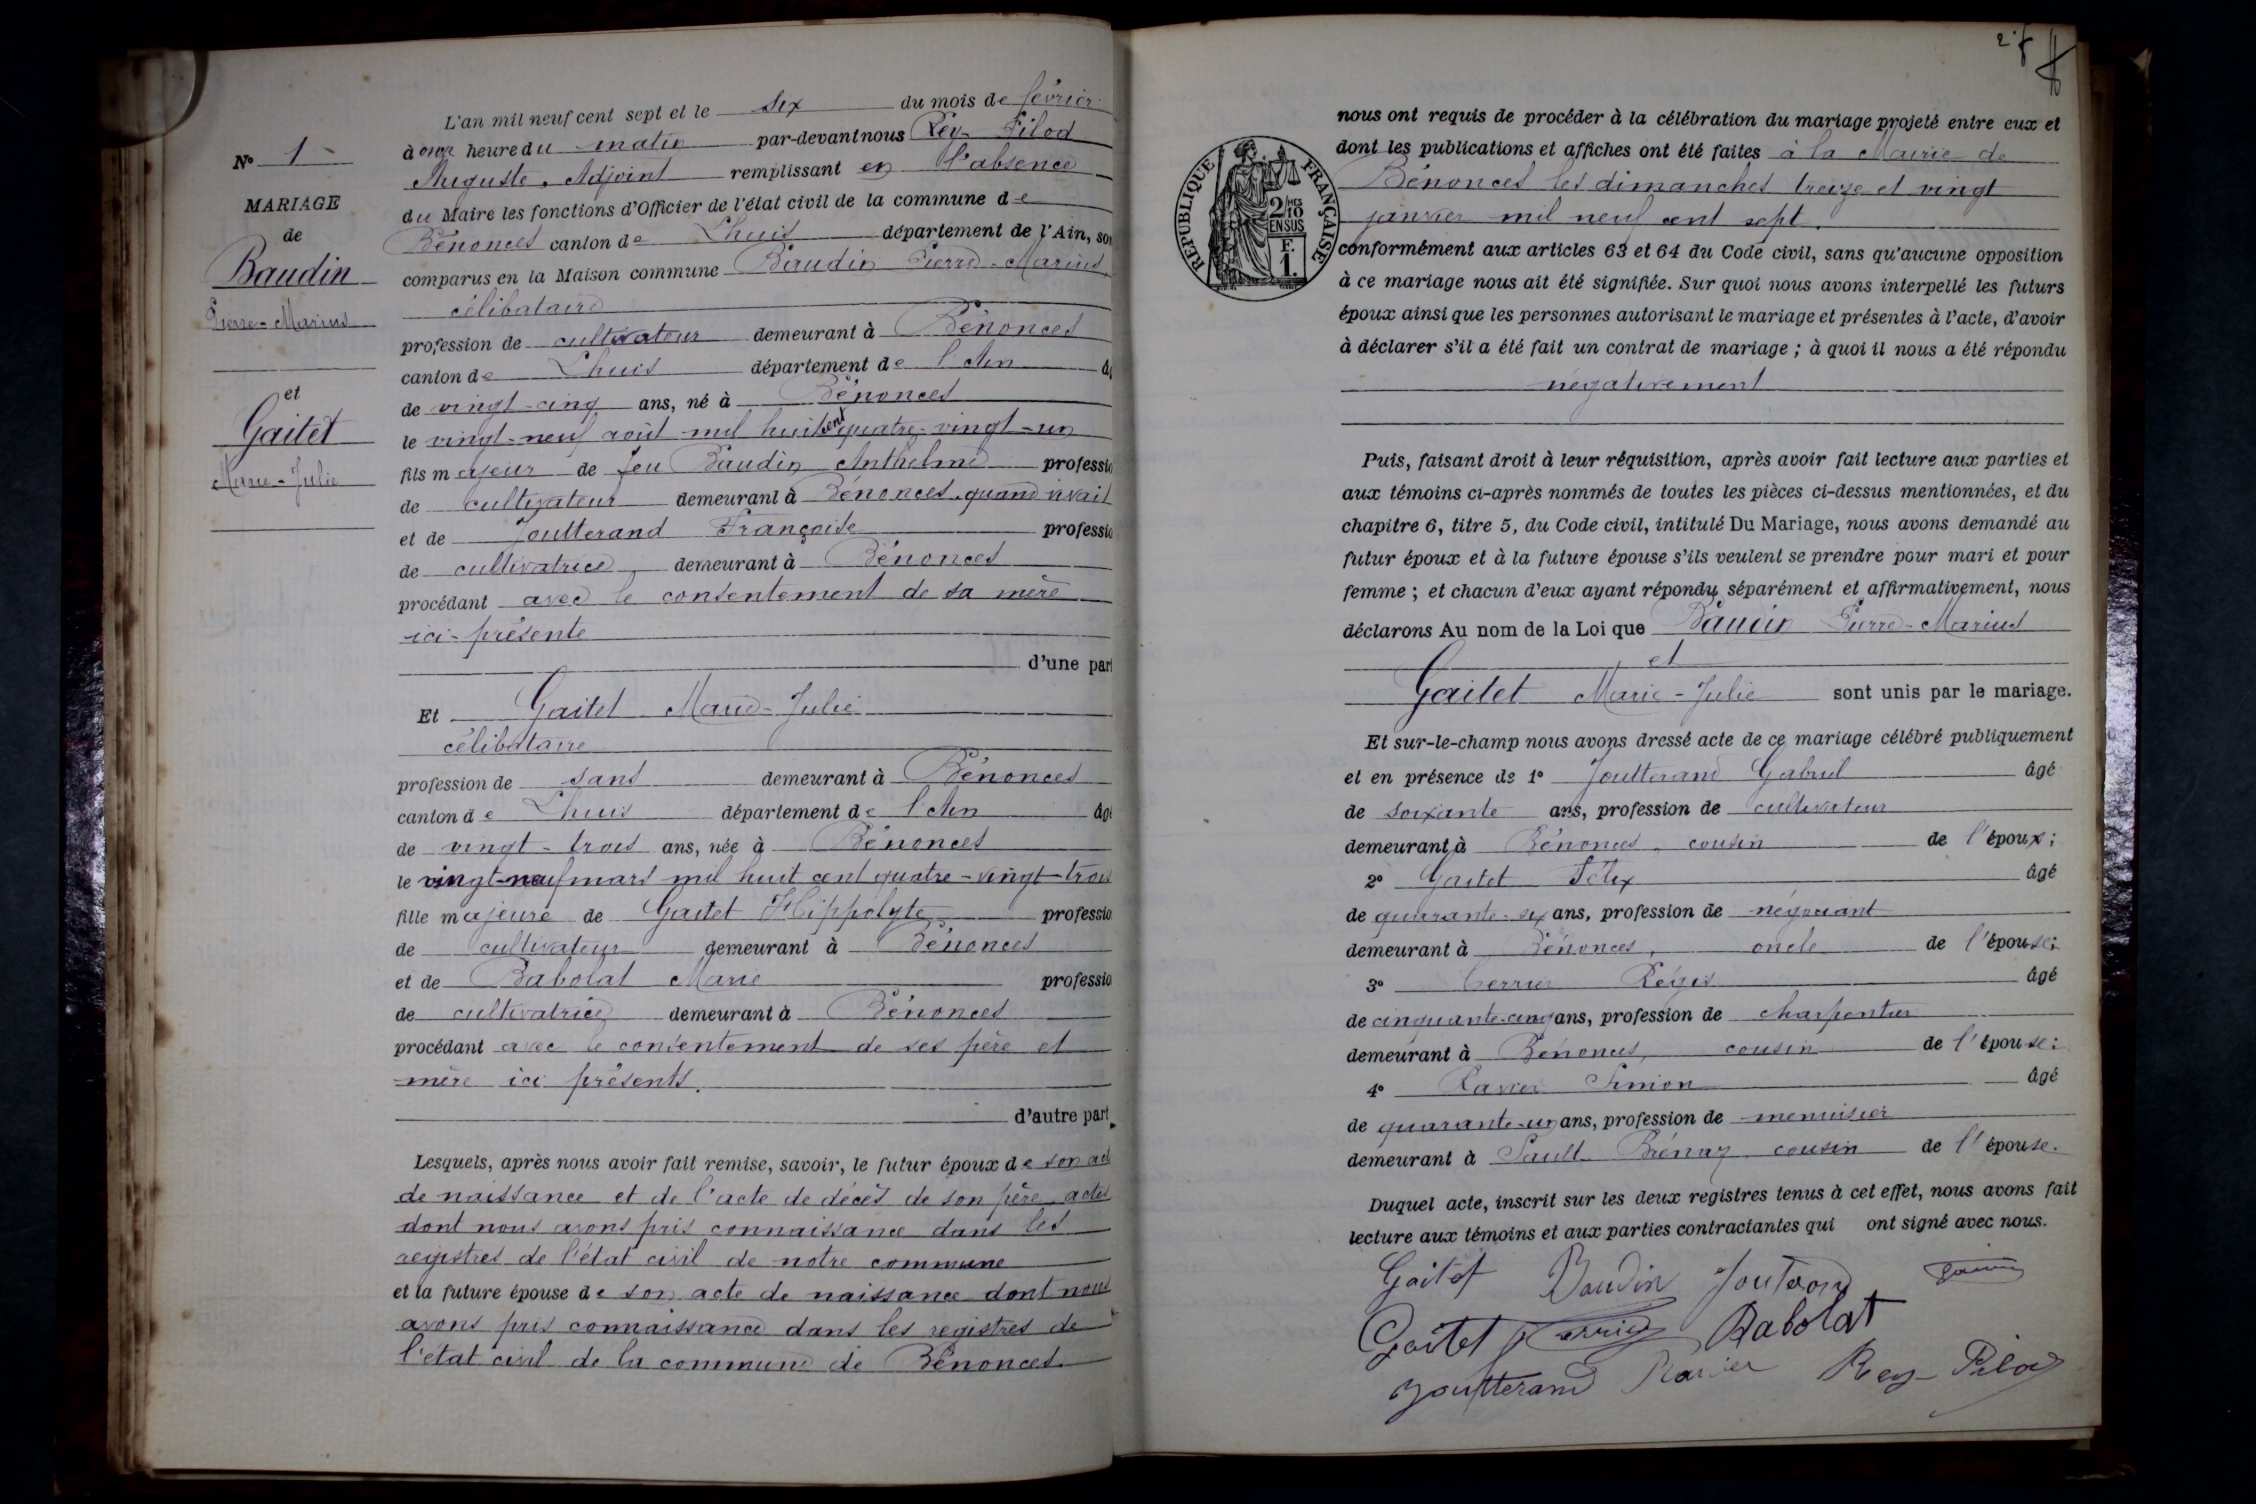 Nº 1
MARIAGE
de
Baudin
Pierre-Marius
et
Gaitet
Marie-Julie
L'an mil neuf cent sept et le six du mois de février
à onze heure du matin par-devant nous Rey-Pilod
Auguste, Adjoint remplissant en l'absence
du Maire les fonctions d'Officier de l'état civil de la commune de
Bénonces canton de Lhuis département de l'Ain, son
comparus en la Maison commune Baudin Pierre-Marius
célibataire
profession de cultivateur demeurant à Bénonces
canton de Lhuis département de l'Ain âg
de vingt-cinq ans, né à Bénonces
le vingt-neuf août mil huit cent quatre-vingt-un
fils majeur de feu Baudin Anthelme professio
de cultivateur demeurant à Bénonces quand vivait
et de Joutterand Françoise professio
de cultivatrice demeurant à Bénonces
procédant avec le consentement de sa mère
ici présente
d'une part
Et Gaitet Marie-Julie
célibataire
profession de sans demeurant à Bénonces
canton de Lhuis département de l'Ain âgé
de vingt-trois ans, née à Bénonces
le vingt-neuf mars mil huit cent quatre-vingt-trois
fille majeure de Gaitet Hippolyte professio
de cultivateur demeurant à Bénonces
et de Babolat Marie professio
de cultivatrice demeurant à Bénonces
procédant avec le consentement de ses père et
mère ici présents.
d'autre part
Lesquels, après nous avoir fait remise, savoir, le futur époux de son act
de naissance et de l'acte de décès de son père actes
dont nous avons pris connaissance dans les
registres de l'état civil de notre commune
et la future épouse de son acte de naissance dont nous
avons pris connaissance dans les registres de
l'état civil de la commune de Bénonces.
2
RÉPUBLIQUE FRANÇAISE
2/10 MES
EN SUS
F.
1.
nous ont requis de procéder à la célébration du mariage projeté entre eux et
dont les publications et affiches ont été faites à la Mairie de
Bénonces les dimanches treize et vingt
janvier mil neuf cent sept.
conformément aux articles 63 et 64 du Code civil, sans qu'aucune opposition
à ce mariage nous ait été signifiée. Sur quoi nous avons interpellé les futurs
époux ainsi que les personnes autorisant le mariage et présentes à l'acte, d'avoir
à déclarer s'il a été fait un contrat de mariage ; à quoi il nous a été répondu
négativement
Puis, faisant droit à leur réquisition, après avoir fait lecture aux parties et
aux témoins ci-après nommés de toutes les pièces ci-dessus mentionnées, et du
chapitre 6, titre 5, du Code civil, intitulé Du Mariage, nous avons demandé au
futur époux et à la future épouse s'ils veulent se prendre pour mari et pour
femme ; et chacun d'eux ayant répondu séparément et affirmativement, nous
déclarons Au nom de la Loi que Baudin Pierre-Marius
et
Gaitet Marie-Julie sont unis par le mariage.
Et sur-le-champ nous avons dressé acte de ce mariage célébré publiquement
et en présence de 1º Joutterand Gabriel âgé
de soixante ans, profession de cultivateur
demeurant à Bénonces, cousin de l'époux;
2º Gaitet Félix âgé
de quarante-six ans, profession de négociant
demeurant à Bénonces, oncle de l'épouse;
3º Perrier Régis âgé
de cinquante-cinq ans, profession de charpentier
demeurant à Bénonces, cousin de l'épouse;
4º Ravier Simon âgé
de quarante-un ans, profession de menuisier
demeurant à Sault-Brénaz cousin de l'épouse.
Duquel acte, inscrit sur les deux registres tenus à cet effet, nous avons fait
lecture aux témoins et aux parties contractantes qui ont signé avec nous.
Gaitet Baudin Joutterand
Gaitet Perrier Babolat
Joutterand Ravier Rey-Pilod